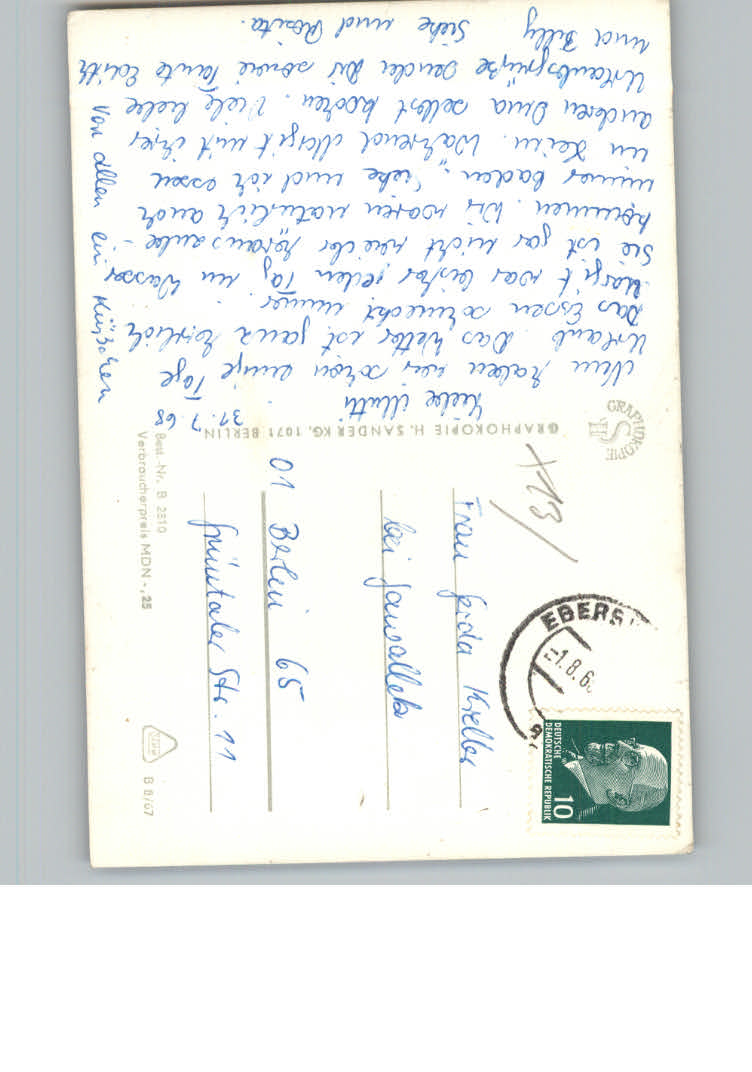 31.7.68
Liebe Mutti
Nun haben wir schon einige Tage
Urlaub. Das Wetter ist ganz herrlich
Das Essen schmeckt immer.
Margit war bisher jeden Tag im Wasser
Sie ist gar nicht wieder herauszube-
kommen. Wir waren natürlich auch
immer baden. Sieke und ich essen
im Heim. Während Margit mit ihrer
anderen Oma selbst kochen. Viele liebe
Urlaubsgrüße senden Dir sowie Tante Edith
und Billy Sieke und Rosita.
von allen ein Küßchen
GRAPHOKOPIE H. SANDER KG, 1071 BERLIN
GRAPHOKOPIE
HS
Best.-Nr. B 2810
Verbraucherpreis MDN -,25
B 8/67
+13
Frau Gerda
bei
01 Berlin 65
Grüntaler Str. 11
EBERS
-1.8.6
DEUTSCHE
DEMOKRATISCHE REPUBLIK
10